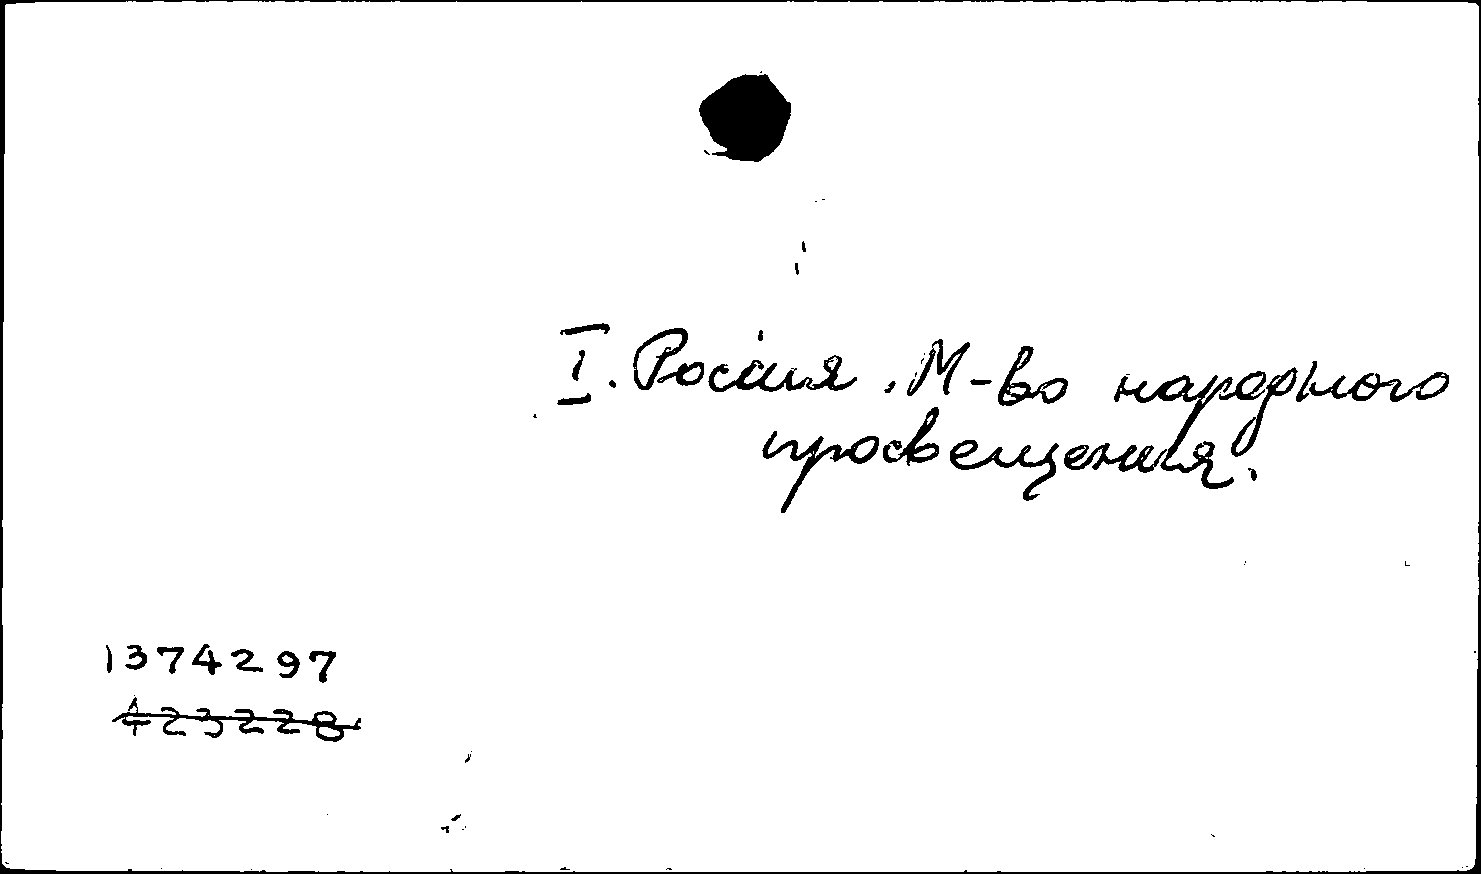 I. Россия. М-во народного
просвещения.
1374297
423228